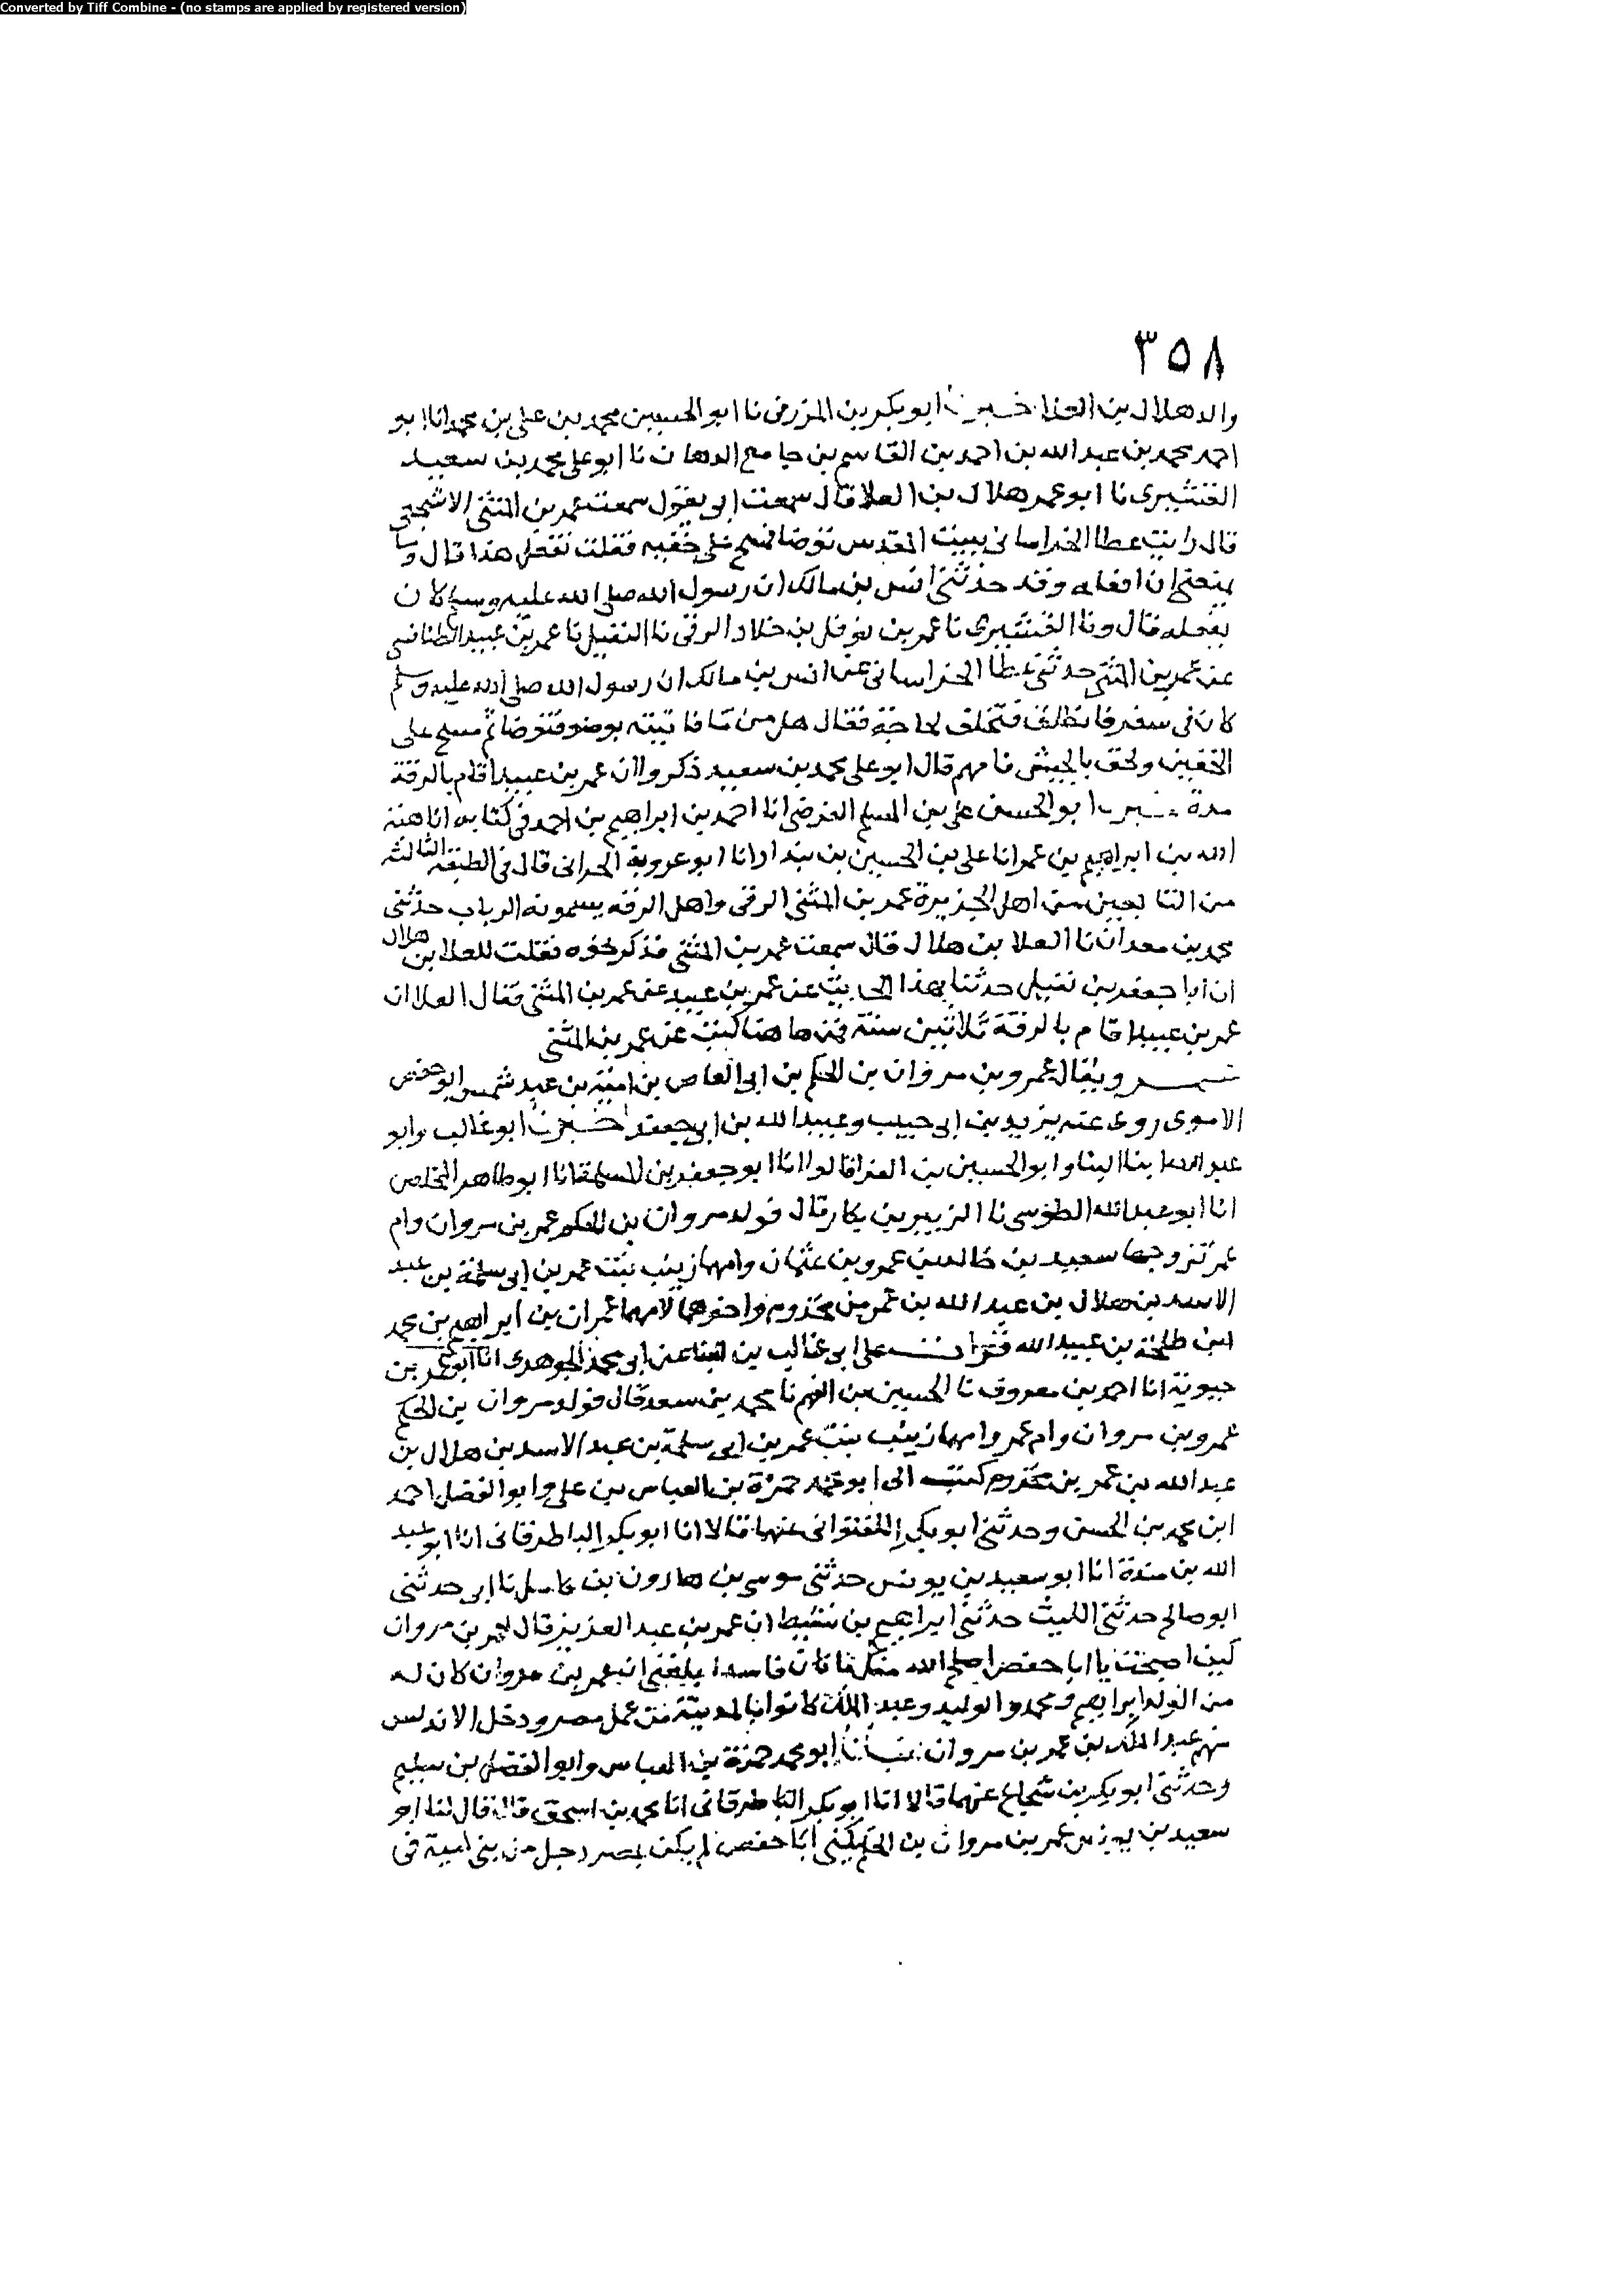 Converted by Tiff Combine - (no stamps are applied by registered version)
٣٥٨
والد هلال بن العلا ابو بكر بن المزرفى نا ابو الحسين محمد بن على بن محمد انا ابو
احمد محمد بن عبد الله بن احمد بن القاسم بن جامع الدهان نا ابو على محمد بن سعيد
القشيرى نا ابو عمر هلال بن العلا قال سمعت ابى يقول سمعت عمر بن المثنى الاشجعى
قال رايت عطا الخراسانى ببيت المقدس توضا فمسح على خفيه فقلت تفعل هذا قال وما
يمنعنى ان افعله وقد حدثنى انس بن مالك ان رسول الله صلى الله عليه وسلم كان
يفعله قال ونا القشيرى نا عمر بن نوفل بن خلاد الرقى نا النفيلى نا عمر بن عبيد الطنافسى
عن عمر بن المثنى حدثنى عطا الخراسانى عن انس بن مالك ان رسول الله صلى الله عليه وسلم
كان فى سفر فانطلق فتخلف لحاجة فقال هل من ما فاتيته بوضو فتوضا ثم مسح على
الخفين ولحق بالجيش فامهم قال ابو على محمد بن سعيد ذكروا ان عمر بن عبيد اقام بالرقة
مدة ابو الحسن على بن المسلم الفرضى انا احمد بن ابراهيم بن احمد فى كتابه انا هبة
الله بن ابراهيم بن عمر انا على بن الحسين بن بندار انا ابو عروبة الحرانى قال فى الطبقة الثالثة
من التابعين من اهل الجزيرة عمر بن المثنى الرقى واهل الرقه يسمونه الرباب حدثنى
محمد بن معدان نا العلا بن هلال قال سمعت عمر بن المثنى فذكر نحوه فقلت للعلا بن هلال
ان ابا جعفر بن نفيل حدثنا بهذا الحديث عن عمر بن عبيد عن عمر بن المثنى فقال العلا ان
عمر بن عبيد اقام بالرقة ثلاثين سنة فمن هاهنا كتب عن عمر بن المثنى
ويقال عمرو بن مروان بن الحكم بن ابى العاص بن امية بن عبد شمس ابو حفص
الاموى روى عنه يزيد بن ابى حبيب وعبيد الله بن ابى جعفر ابو غالب وابو
عبد الله ابنا البنا وابو الحسين بن الفرا قالوا انا ابو جعفر بن المسلمة انا ابو طاهر المخلص
انا ابو عبد الله الطوسى نا الزبير بن بكار قال فولد مروان بن الحكم عمر بن مروان وام
عمر تزوجها سعيد بن خالد بن عمرو بن عثمان وامها زينب بنت عمر بن ابى سلمة بن عبد
الاسد بن هلال بن عبد الله بن عمر بن مخزوم واخوهما لامهما عمران بن ابراهيم بن محمد
ابن طلحة بن عبيد الله قرات على ابى غالب بن البنا عن ابى محمد الجوهرى انا ابو عمر بن
حيوية انا احمد بن معروف نا الحسين بن الفهم نا محمد بن سعد قال فولد مروان بن الحكم
عمرو بن مروان وام عمرو امها زينب بنت عمر بن ابى سلمة بن عبد الاسد بن هلال بن
عبد الله بن عمر بن مخزوم كتب الى ابو محمد حمزة بن العباس بن على وابو الفضل احمد
ابن محمد بن الحسن وحدثنى ابو بكر اللفتوانى عنهما قالا انا ابو بكر الباطرقانى انا ابو عبد
الله بن مندة انا ابو سعيد بن يونس حدثنى موسى بن هارون بن كامل نا ابى حدثنى
ابو صالح حدثنى الليث حدثنى ابراهيم بن نشيط ان عمر بن عبد العزيز قال لعمر بن مروان
كيف اصبحت يا ابا حفص اصلح الله منك ما كان فاسدا بلغنى ان عمر بن مروان كان له
من الولد ابراهيم ومحمد والوليد وعبد الملك كانوا بالمدينة من عمل مصر ودخل الاندلس
منهم عبد الملك بن عمر بن مروان ابو محمد حمزة بن العباس وابو الفضل بن سليم
وحدثنى ابو بكر بن شجاع عنهما قالا انا ابو بكر الباطرقانى انا محمد بن اسحق قال قال لنا ابو
سعيد بن يونس عمر بن مروان بن الحكم يكنى ابا حفص لم يكن بمصر رجل من بنى امية فى